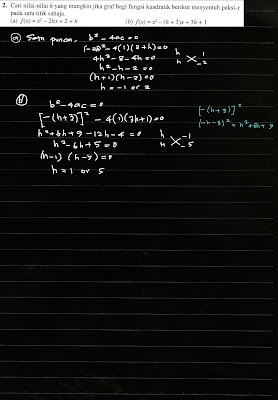 2. Cari nilai-nilai h yang mungkin jika graf bagi fungsi kuadratik berikut menyentuh paksi-x
pada satu titik sahaja.
(a) f(x) = x² − 2hx + 2 + h (b) f(x) = x² − (h + 3)x + 3h + 1
(a) Satu punca. b² − 4ac = 0
(−2h)² − 4(1)(2+h) = 0
4h² − 8 − 4h = 0
h² − h − 2 = 0
(h+1)(h−2) = 0
h = −1 or 2
h 1
h −2
(b) b² − 4ac = 0
[−(h+3)]² − 4(1)(3h+1) = 0
h² + 6h + 9 − 12h − 4 = 0
h² − 6h + 5 = 0
(h−1)(h−5) = 0
h = 1 or 5
h −1
h −5
[−(h+3)]²
(−h−3)² = h² + 6h + 9